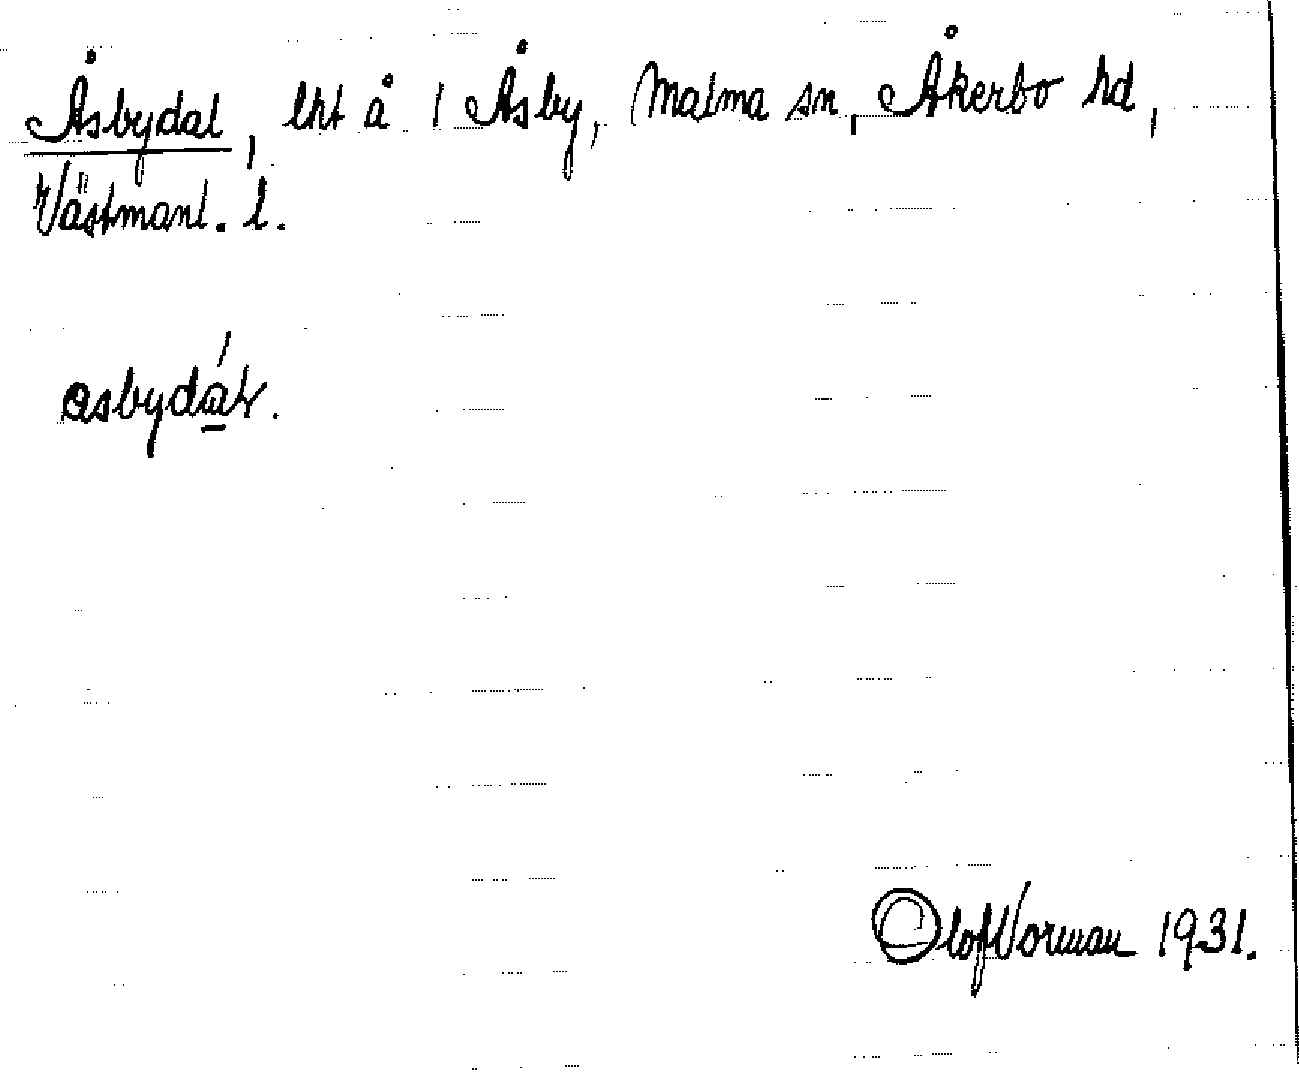 Åsbydal, lht å 1 Åsby, Malma sn, Åkerbo hd,
Västmanl. l.
asbydál.
Olof Vorman 1931.